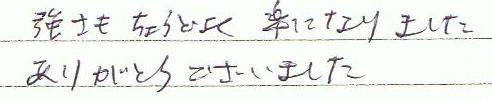 強さも ちょうどよく 楽になりました
ありがとうございました